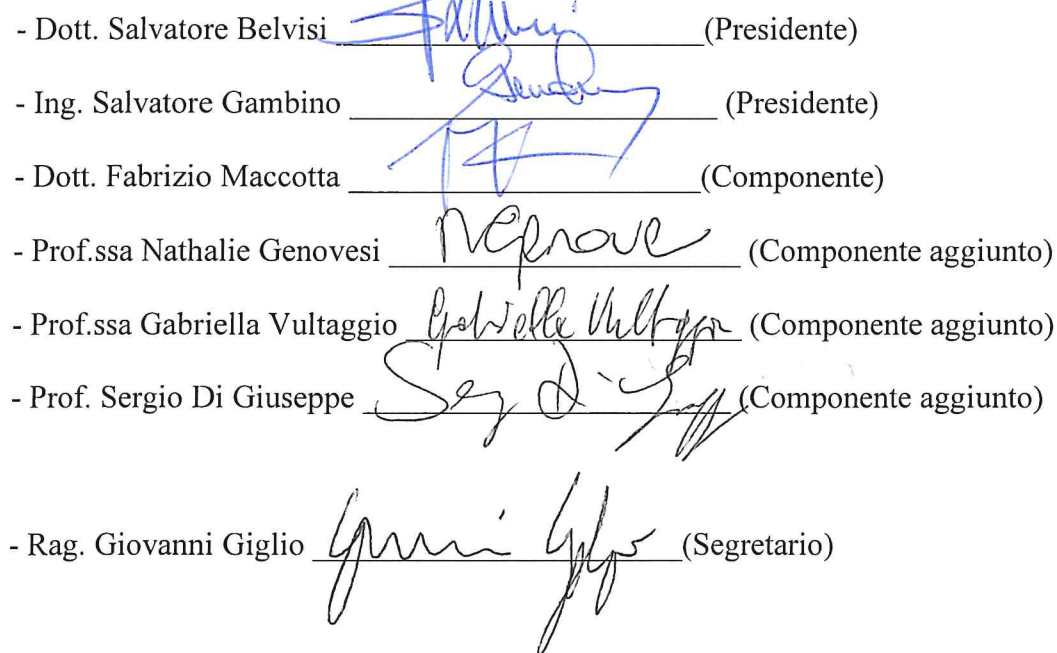 - Dott. Salvatore Belvisi (Presidente)
- Ing. Salvatore Gambino (Presidente)
- Dott. Fabrizio Maccotta (Componente)
- Prof.ssa Nathalie Genovesi (Componente aggiunto)
- Prof.ssa Gabriella Vultaggio Gabriella Vultaggio (Componente aggiunto)
- Prof. Sergio Di Giuseppe (Componente aggiunto)
- Rag. Giovanni Giglio (Segretario)